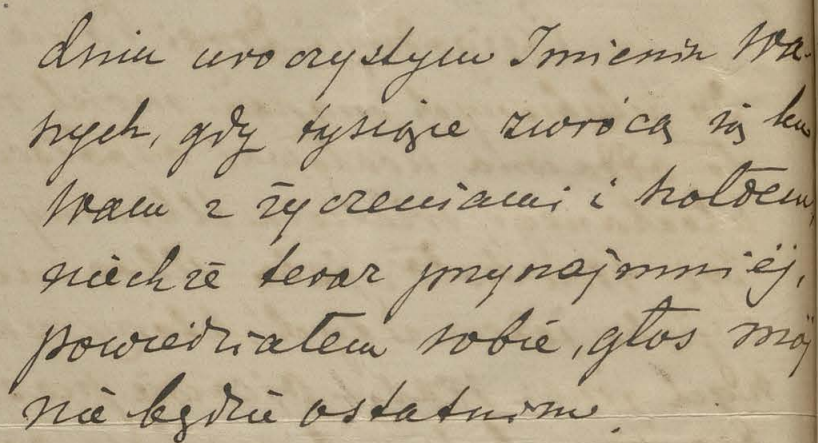 dniu uroczystym Imienin Wa-
szych, gdy tysiące zwrócą się ku
Wam z życzeniami i hołdem,
niechże teraz przynajmniéj,
powiedziałem sobie, głos mój
nie będzie ostatnim.